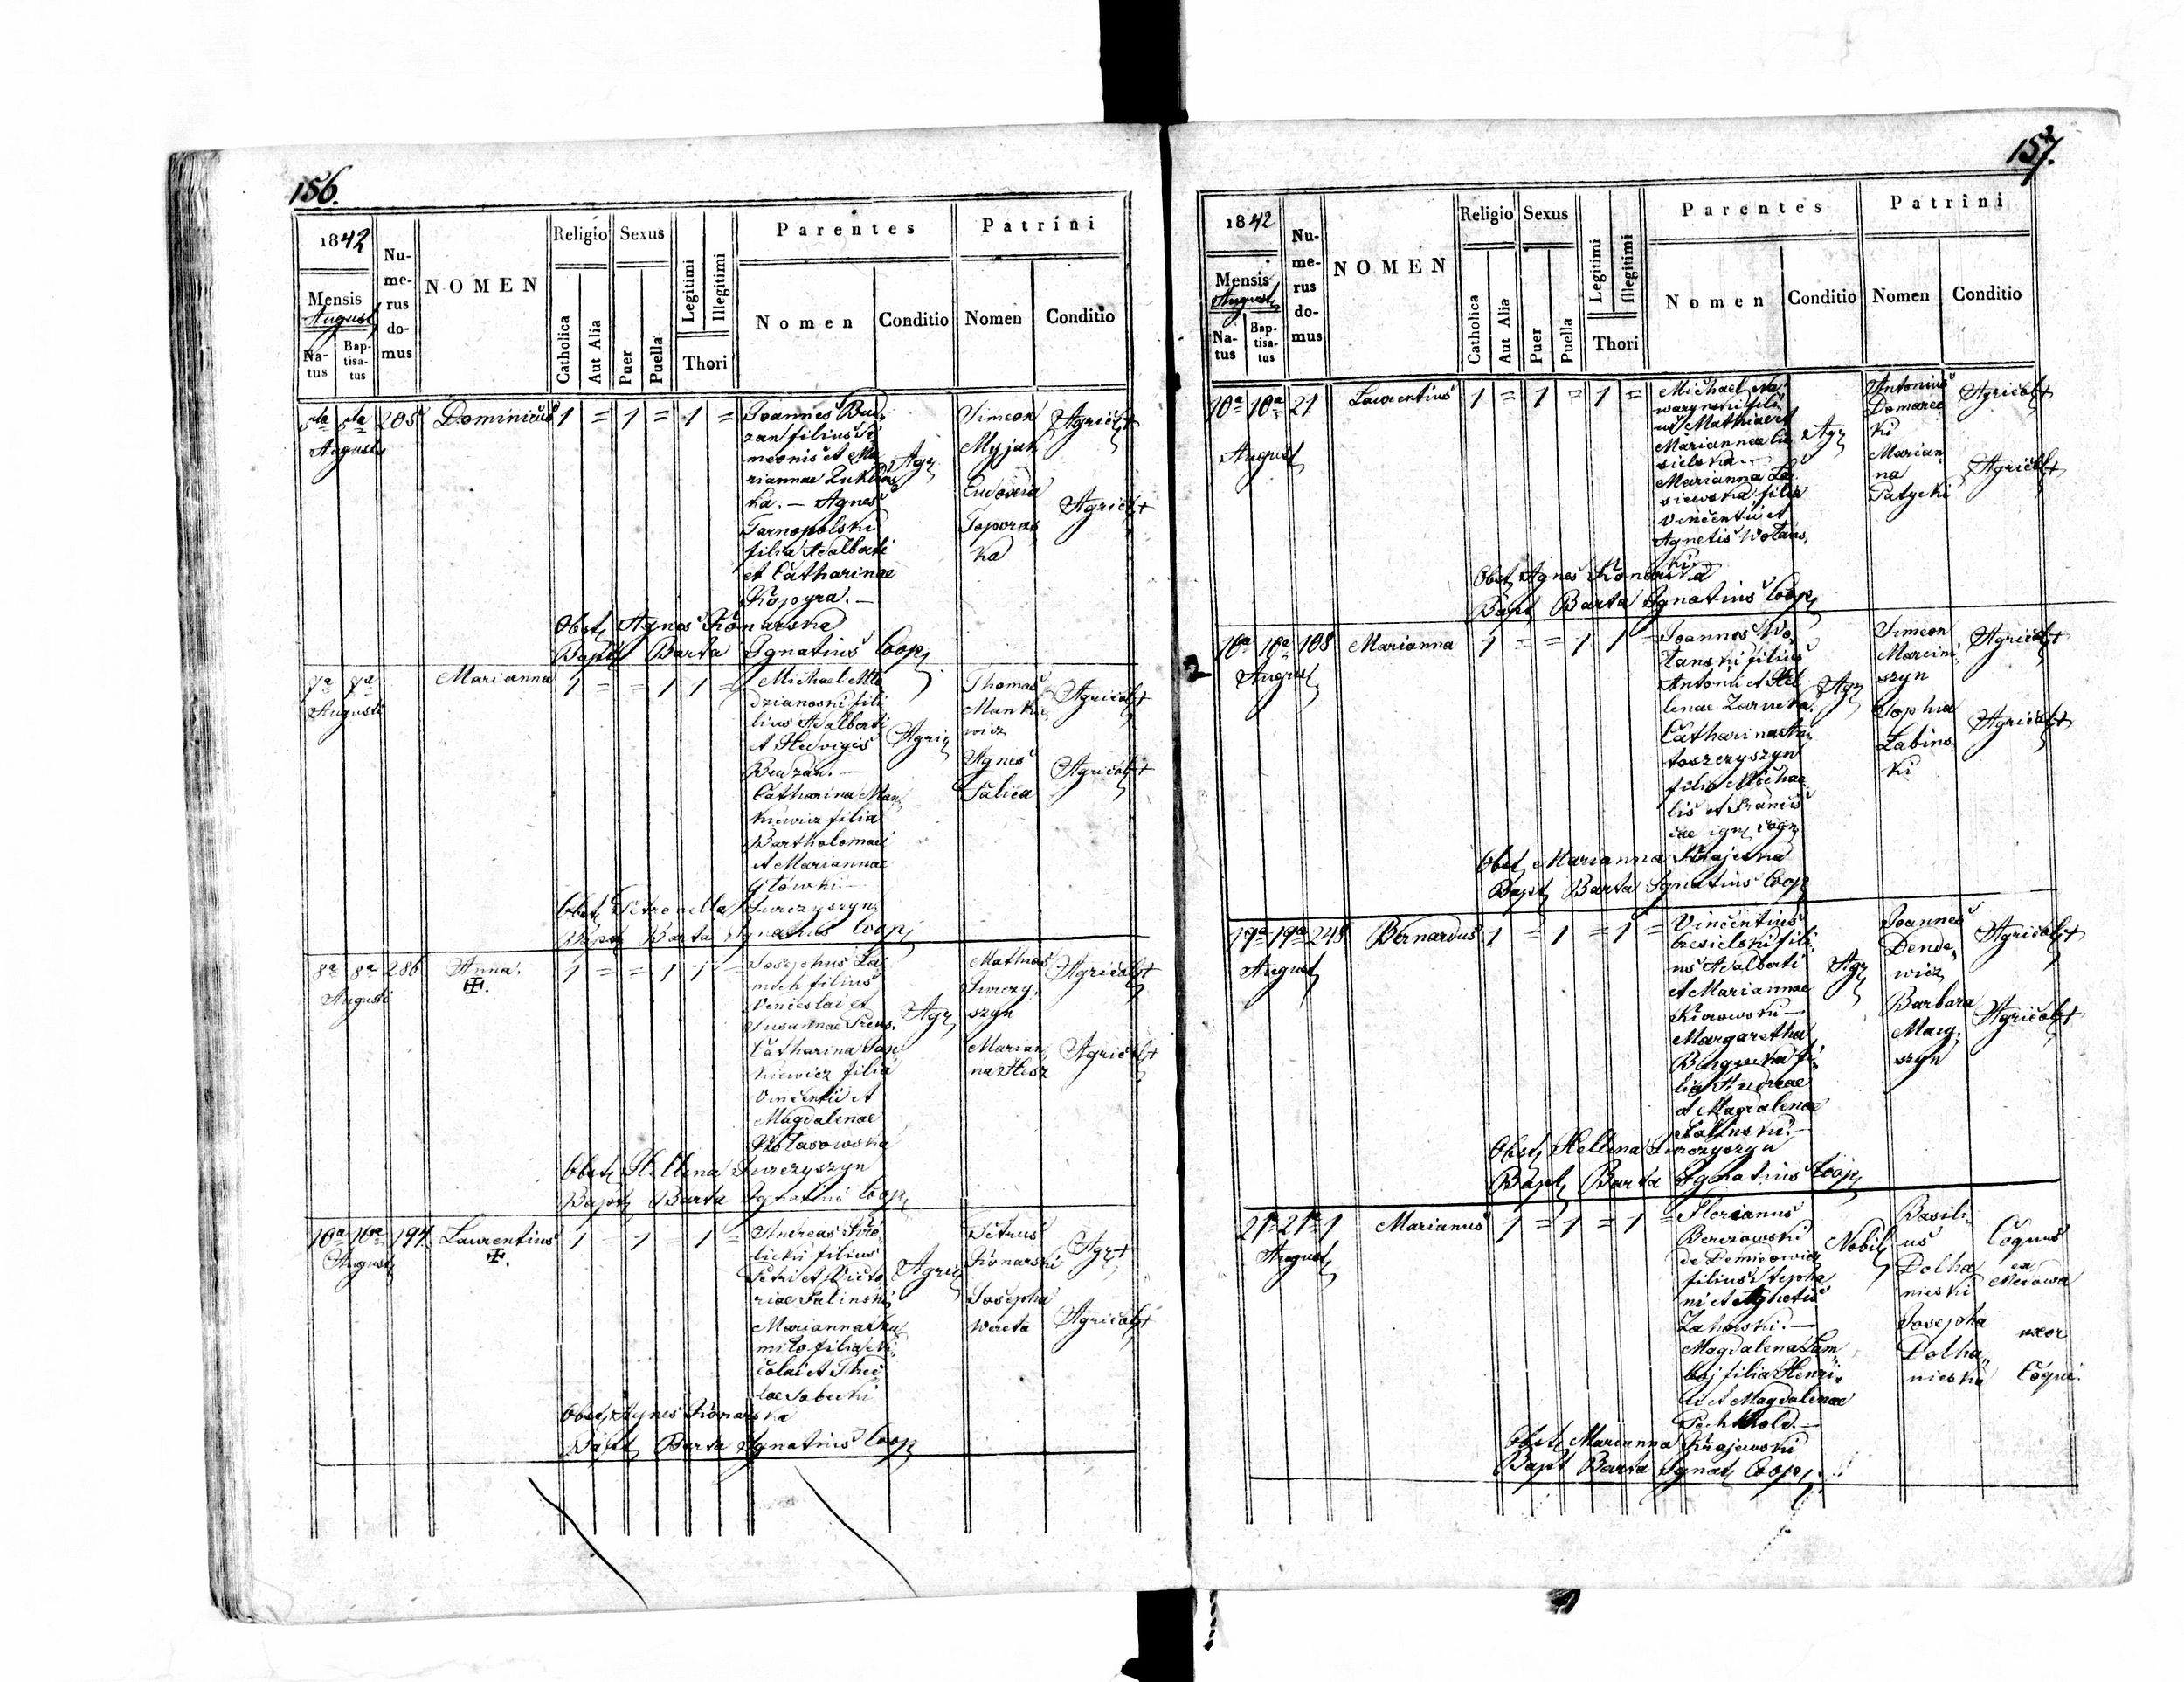 156.
1842
Mensis
Augusti
Natus
Baptisatus
Numerus domus
NOMEN
Religio
Catholica
Aut Alia
Sexus
Puer
Puella
Legitimi
Illegitimi
Thori
Parentes
Nomen
Conditio
Patrini
Nomen
Conditio
5ta 5ta 205 Dominicus 1 = 1 = 1 =
Augusti
Joannes Bud
zan filius Si
meonis et Ma
riannae Zuklins
ka. — Agnes
Tarnopolski
filia Adalberti
et Catharinae
Kopyra. —
Agr
Simeon
Myjak
Eudoxia
Toporos
ka
Agricolt
Agricolt
Obst Agnes Konarska
Bapt Barta Ignatius Coop
7a 7a Marianna 1 = = 1 1 =
Augusti
Michael Mło
dzianoski fili
lius Adalberti
et Hedvigis
Budzan. —
Catharina Man
kiewicz filia
Bartholomaei
et Mariannae
Główki. —
Agric
Thomas
Mankie
wicz
Agnes
Salica
Agricolt
Agricolt
Obst Petronella Jurczyszyn
Bapt Barta Ignatius Coop
8a 8a 286 Anna. 1 = = 1 1 =
Augusti
Josephus La
mch filius
Venceslai et
Susannae Preus.
Catharina
kiewicz filia
Vincentii et
Magdalenae
Wołasowska
Agr
Mathias
Jurczy
szyn
Marian
na Hesz
Agricolt
Agricolt
Obst Hellena Jurczyszyn
Bapt Barta Ignatius Coop
10a 10a 194 Laurentius 1 - 1 - 1 =
Augusti
Andreas Kró
licki filius
Petri et Victo
riae Salinski
Marianna
miło filia Ni
colai et Thec
lae Sabecki
Agric
Petrus
Konarski
Josepha
Wereta
Agr
Agricolt
Obst Agnes Konarska
Bapt Barta Ignatius Coop
157.
1842
Mensis
Augusti
Natus
Baptisatus
Numerus domus
NOMEN
Religio
Catholica
Aut Alia
Sexus
Puer
Puella
Legitimi
Illegitimi
Thori
Parentes
Nomen
Conditio
Patrini
Nomen
Conditio
10a 10a 21 Laurentius 1 = 1 = 1 =
August
Michael Na
warynski fili
us Mathiae et
Mariannae Cie
sielska —
Marianna La
siewska filia
Vincentii et
Agnetis Wołans
ki —
Agr
Antonius
Domarec
ki
Marian
na
Patycki
Agricolt
Agricolt
Obst Agnes Konarska
Bapt Barta Ignatius Coop
16a 16a 108 Marianna 1 = = 1 1 =
August
Joannes Wo
łanski filius
Antonii et Hel
lenae Zarucka.
Catharina Ma
toszczyszyn
filia Michae
lis et Francis
cae ign cogn
Agr
Simeon
Marcini
szyn
Sophia
Łabins
ki
Agricolt
Agricolt
Obst Marianna Krajeska
Bapt Barta Ignatius Coop
19a 19a 248 Bernardus 1 = 1 = 1 =
August
Vincentius
Ciesielski fili
us Adalberti
et Mariannae
Kierowski —
Margaretha
fi
lia Andreae
et Magdalenae
Sallinski. —
Agr
Joannes
Dende
wicz
Barbara
Macy
szyn
Agricolt
Agricolt
Obst Hellena Jurczyszyn
Bapt Barta Ignatius Coop
21a 21a 1 Marianus 1 = 1 = 1 =
August
Florianus
Berezowski
de Demkowicz
filius Stepha
ni et Agnetis
Zahorski. —
Magdalena Lam
boj filia Henri
ci et Magdalenae
Pechthold. —
Nobil
Basili
us
Dolha
nieski
Josepha
Dolha
nieska
Coquus
ex
Medowa
uxor
Coqui.
Obst Marianna Krajewski
Bapt Barta Ignat Coop